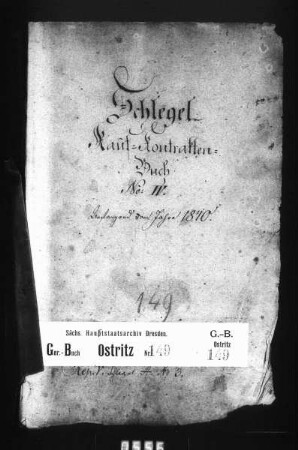 Schlegel
Kauf=Kontrakten=
Buch
No. IV.
Anfangend vom Jahre 1810.
149
Sächs. Hauptstaatsarchiv Dresden.
G.-B.
Ger.-Buch Ostritz Nr. 149
Ostritz
149